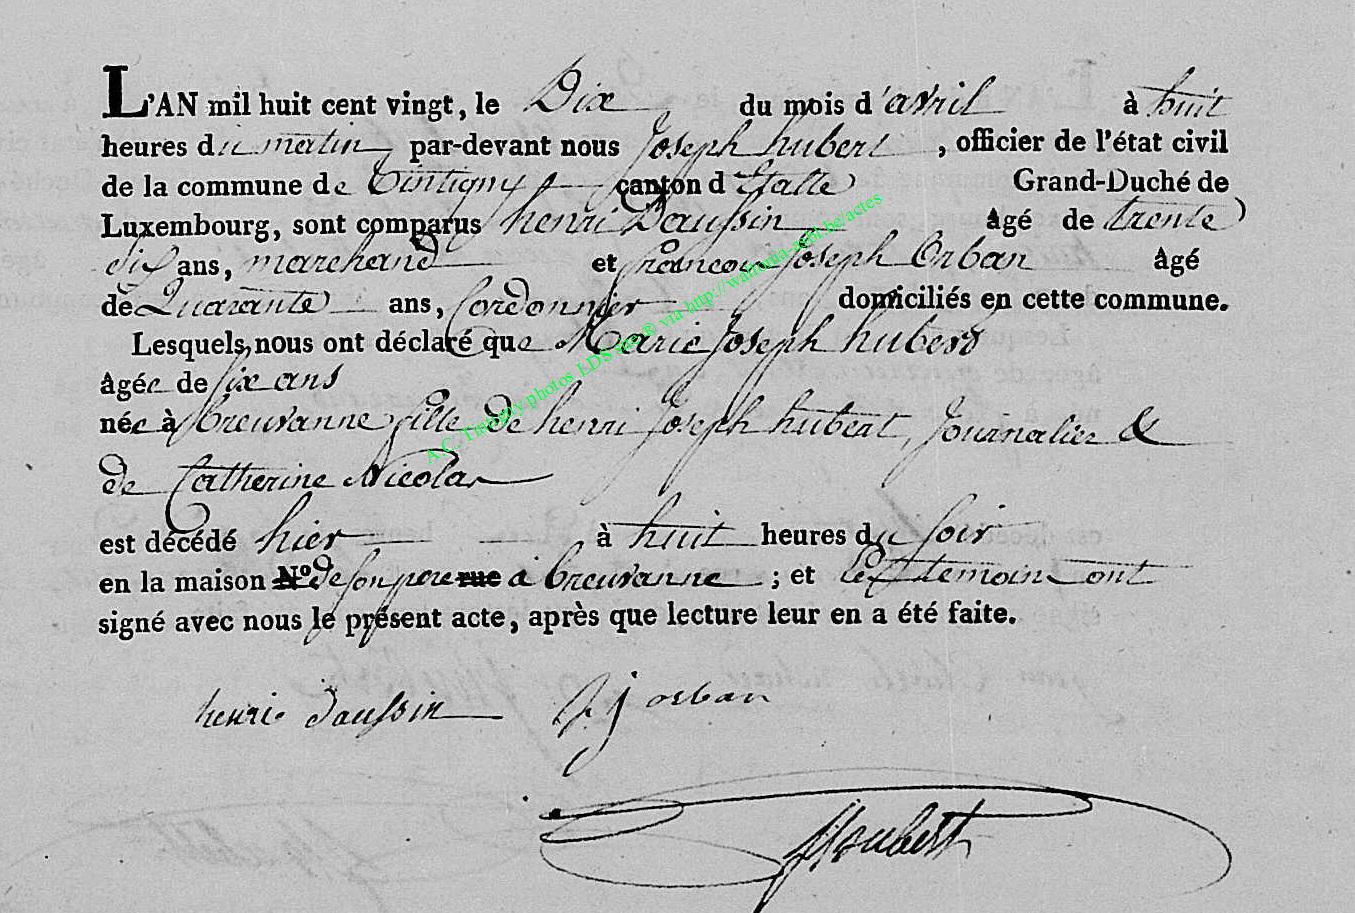 L'AN mil huit cent vingt, le Dix du mois d'avril à huit
heures du matin par-devant nous Joseph hubert, officier de l'état civil
de la commune de Tintigny canton d'Etalle Grand-Duché de
Luxembourg, sont comparus henri Daussin âgé de trente
dix ans, marchand et françois Joseph Orban âgé
de Quarante ans, Cordonnier domiciliés en cette commune.
Lesquels, nous ont déclaré que Marie Joseph hubert
âgée de six ans
née à breuvanne fille de henri Joseph hubert, Journalier &
de Catherine Nicolas
est décédé hier à huit heures du soir
en la maison N.º de son pere rue à breuvanne ; et les temoins ont
signé avec nous le présent acte, après que lecture leur en a été faite.
henri daussin fj orban
Houbert
A.C. Tintigny photos LDS via http://wallonia-asbl.be/actes